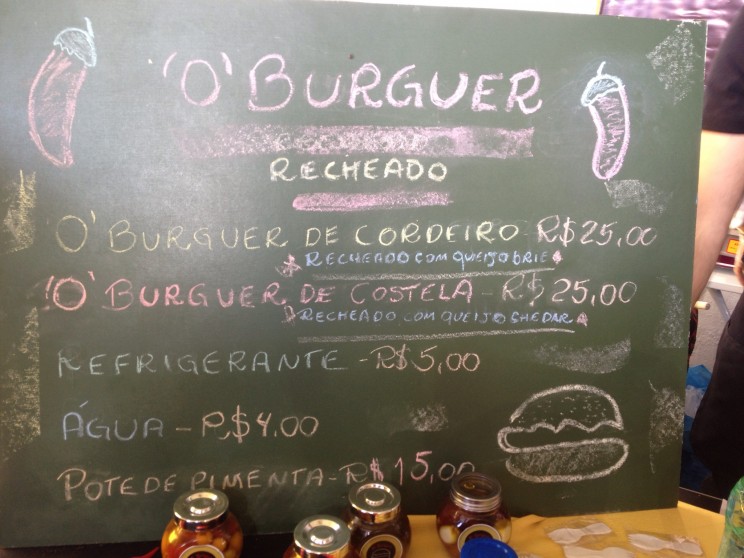 "O' BURGUER
RECHEADO
O' BURGUER DE CORDEIRO - R$25,00
RECHEADO COM QUEIJO BRIE
O' BURGUER DE COSTELA - R$25,00
RECHEADO COM QUEIJO SHEDAR
REFRIGERANTE - R$5,00
ÁGUA - R$4,00
POTE DE PIMENTA - R$15,00